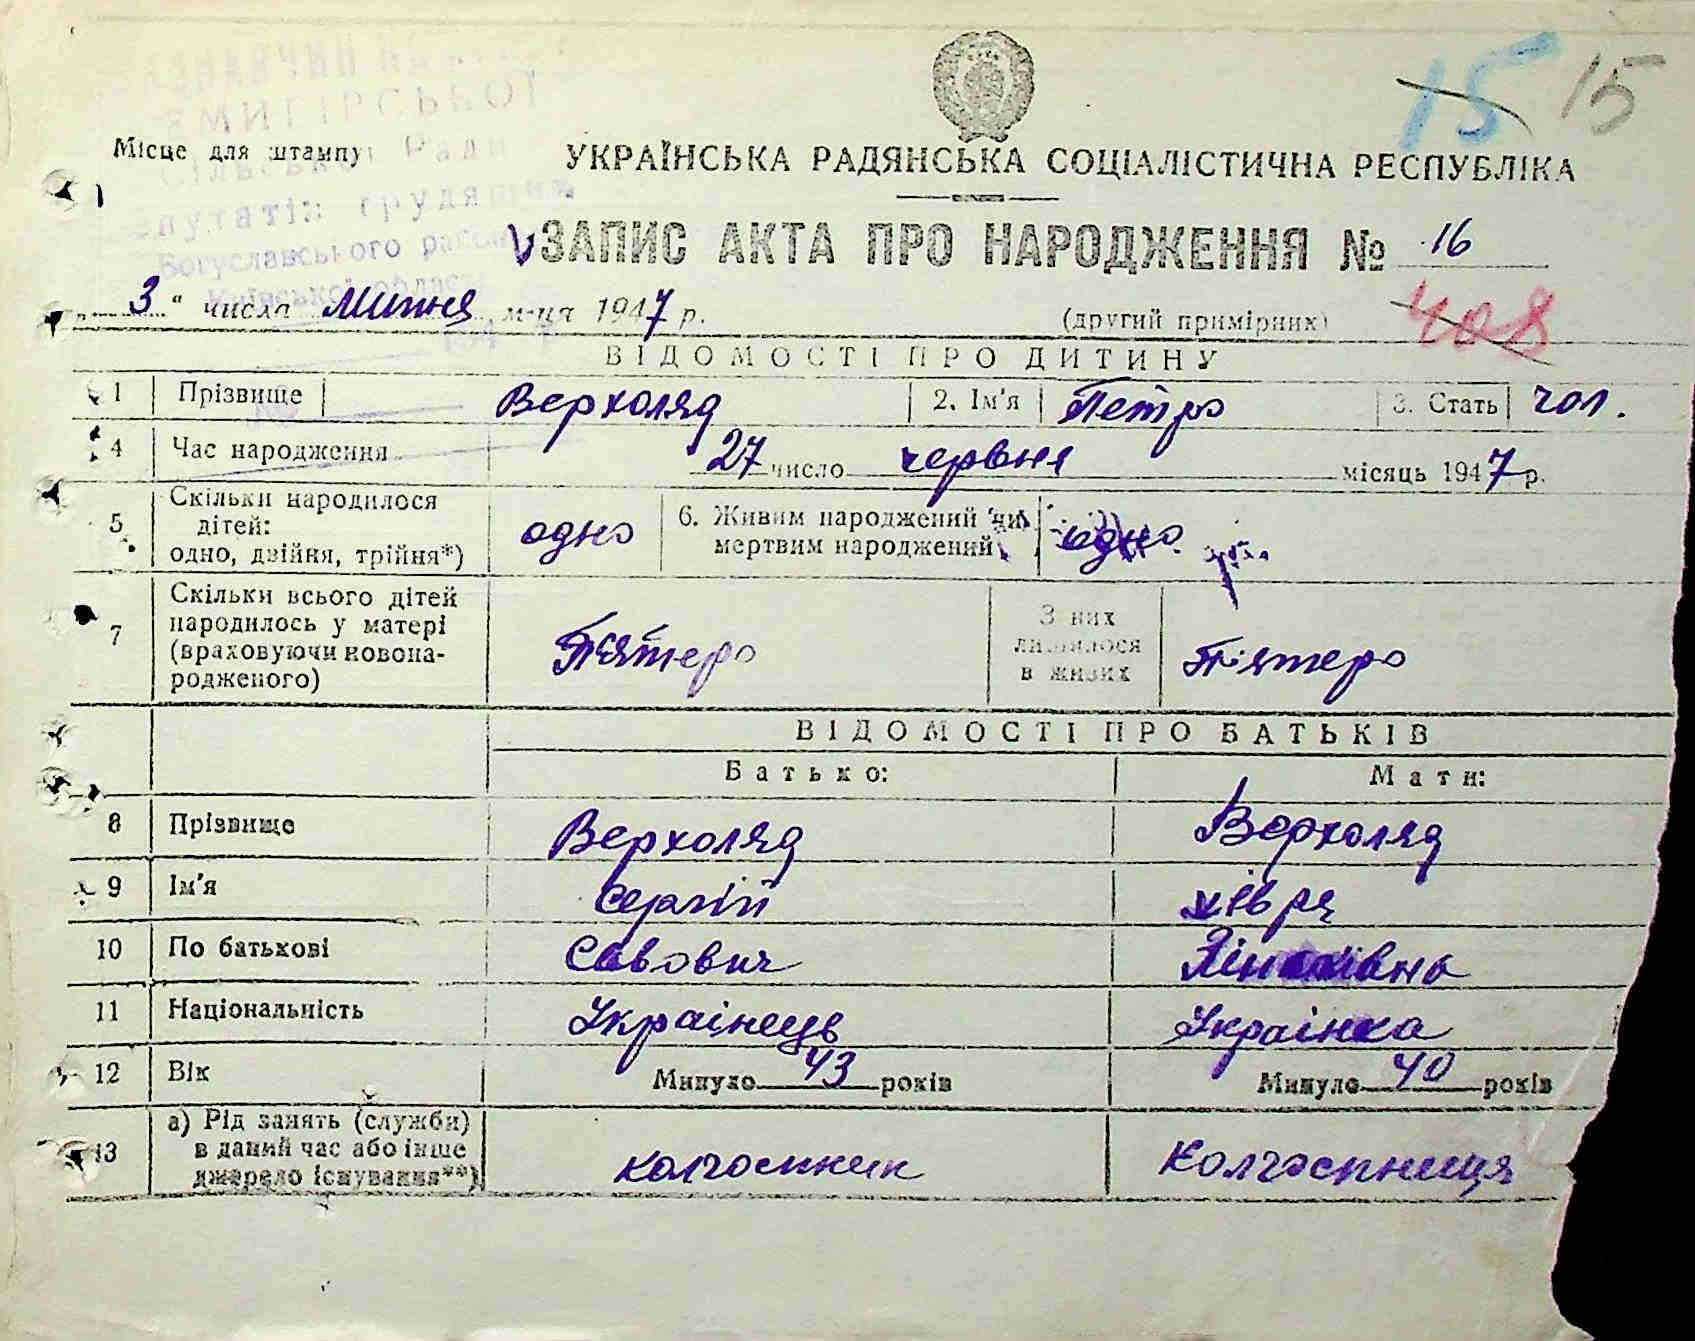 15 15
Місце для штампу
УКРАЇНСЬКА РАДЯНСЬКА СОЦІАЛІСТИЧНА РЕСПУБЛІКА
ЗАПИС АКТА ПРО НАРОДЖЕННЯ № 16
Сільської Ради
депутатів трудящих
Богуславського району
Київської області
„ 3 “ числа Липня м-ця 1947 р.
(другий примірник)
408
ВІДОМОСТІ ПРО ДИТИНУ
1 Прізвище Верхоляд 2. Ім'я Петро 3. Стать чол.
4 Час народження 27 число червня місяць 1947 р.
5 Скільки народилося
дітей:
одно, двійня, трійня*)
одно
6. Живим народжений чи
мертвим народжений
одно
7 Скільки всього дітей
народилось у матері
(враховуючи новона-
родженого)
П'ятеро
З них
лишилося
в живих
П'ятеро
ВІДОМОСТІ ПРО БАТЬКІВ
Батько: Мати:
8 Прізвище Верхоляд Верхоляд
9 Ім'я Сергій Хівря
10 По батькові Савович
11 Національність Українець Українка
12 Вік Минуло 43 років Минуло 40 років
13 а) Рід занять (служби)
в даний час або інше
джерело існування**)
колгоспник Колгоспниця